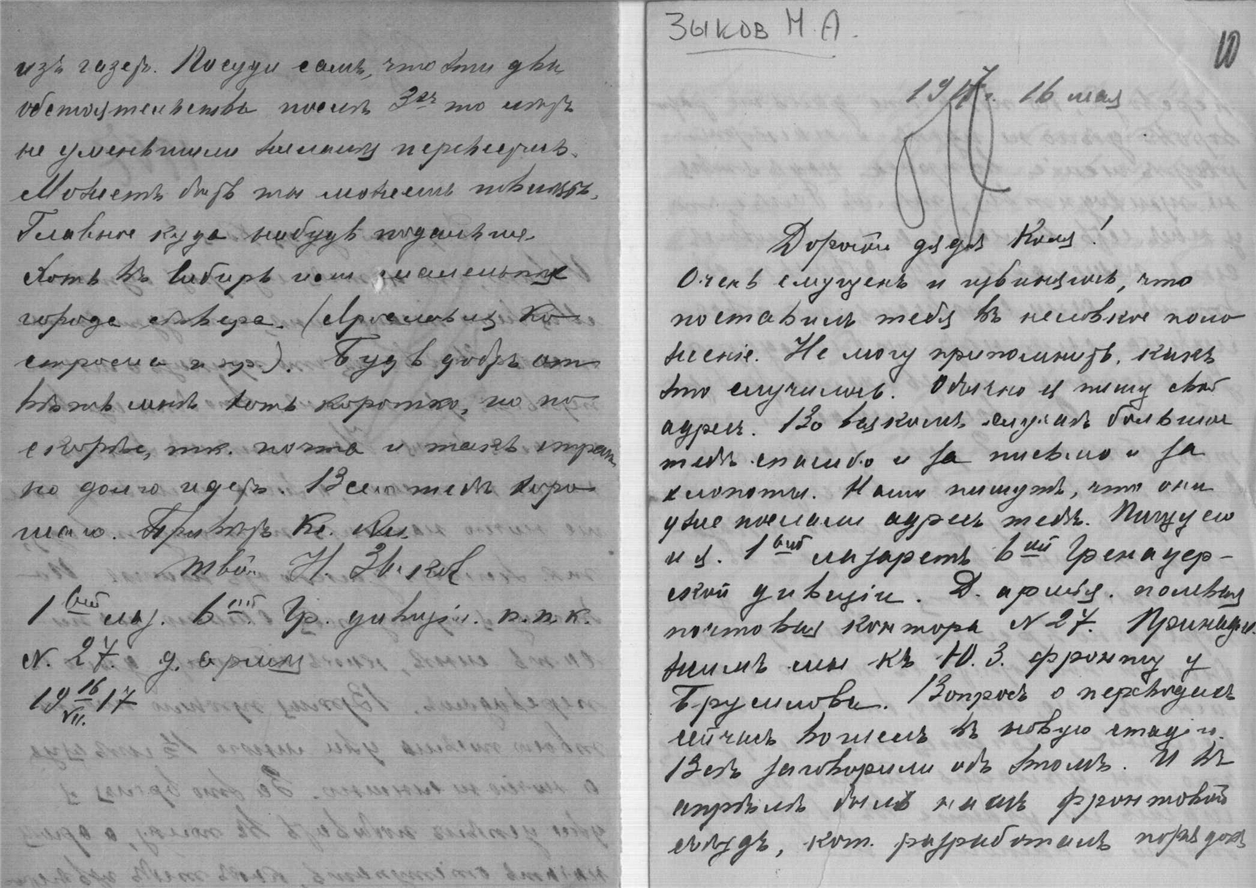 изъ газетъ. Посуди самъ, что эти два
обстоятельства послѣ 3хъ то лѣтъ
не уменьшили желанія
Можетъ быть ты можешь
Главное куда нибудь подальше
Хоть въ Сибирь или маленькій
городъ сѣвера. (Ярославль Ко-
строма и пр). Будь добръ от-
вѣть мнѣ хоть коротко, но по-
скорѣе, т.к. почта и такъ стран-
но долго идетъ. Всего тебѣ хоро-
шаго. Привѣтъ
твой Н. Зыковъ
1ый лаз. 6ой Гр. дивизіи. п.п.к.
N. 27. д. армія
19 16/VII. 17
Зыков Н. А.
10
1917 г. 16 мая
Дорогой дядя Коля!
Очень смущенъ и извиняюсь, что
поставилъ тебя въ неловкое поло
женіе. Не могу припомнить, какъ
это случилось. Обычно я пишу свой
адресъ. Во всякомъ случаѣ большое
тебѣ спасибо и за письмо и за
хлопоты. Наши пишутъ, что они
уже послали адресъ тебѣ. Пишу его
и я. 1ый лазаретъ 6ой Гренадер-
ской дивизіи. Д. армія. полевая
почтовая контора N 27. Принадле
жимъ мы къ Ю. З. фронту у
Брусилова. Вопросъ о переводахъ
сейчасъ вошелъ въ новую стадію.
Всѣ заговорили объ этомъ. И въ
апрѣлѣ былъ нашъ фронтовой
съѣздъ, кот. разработалъ порядокъ